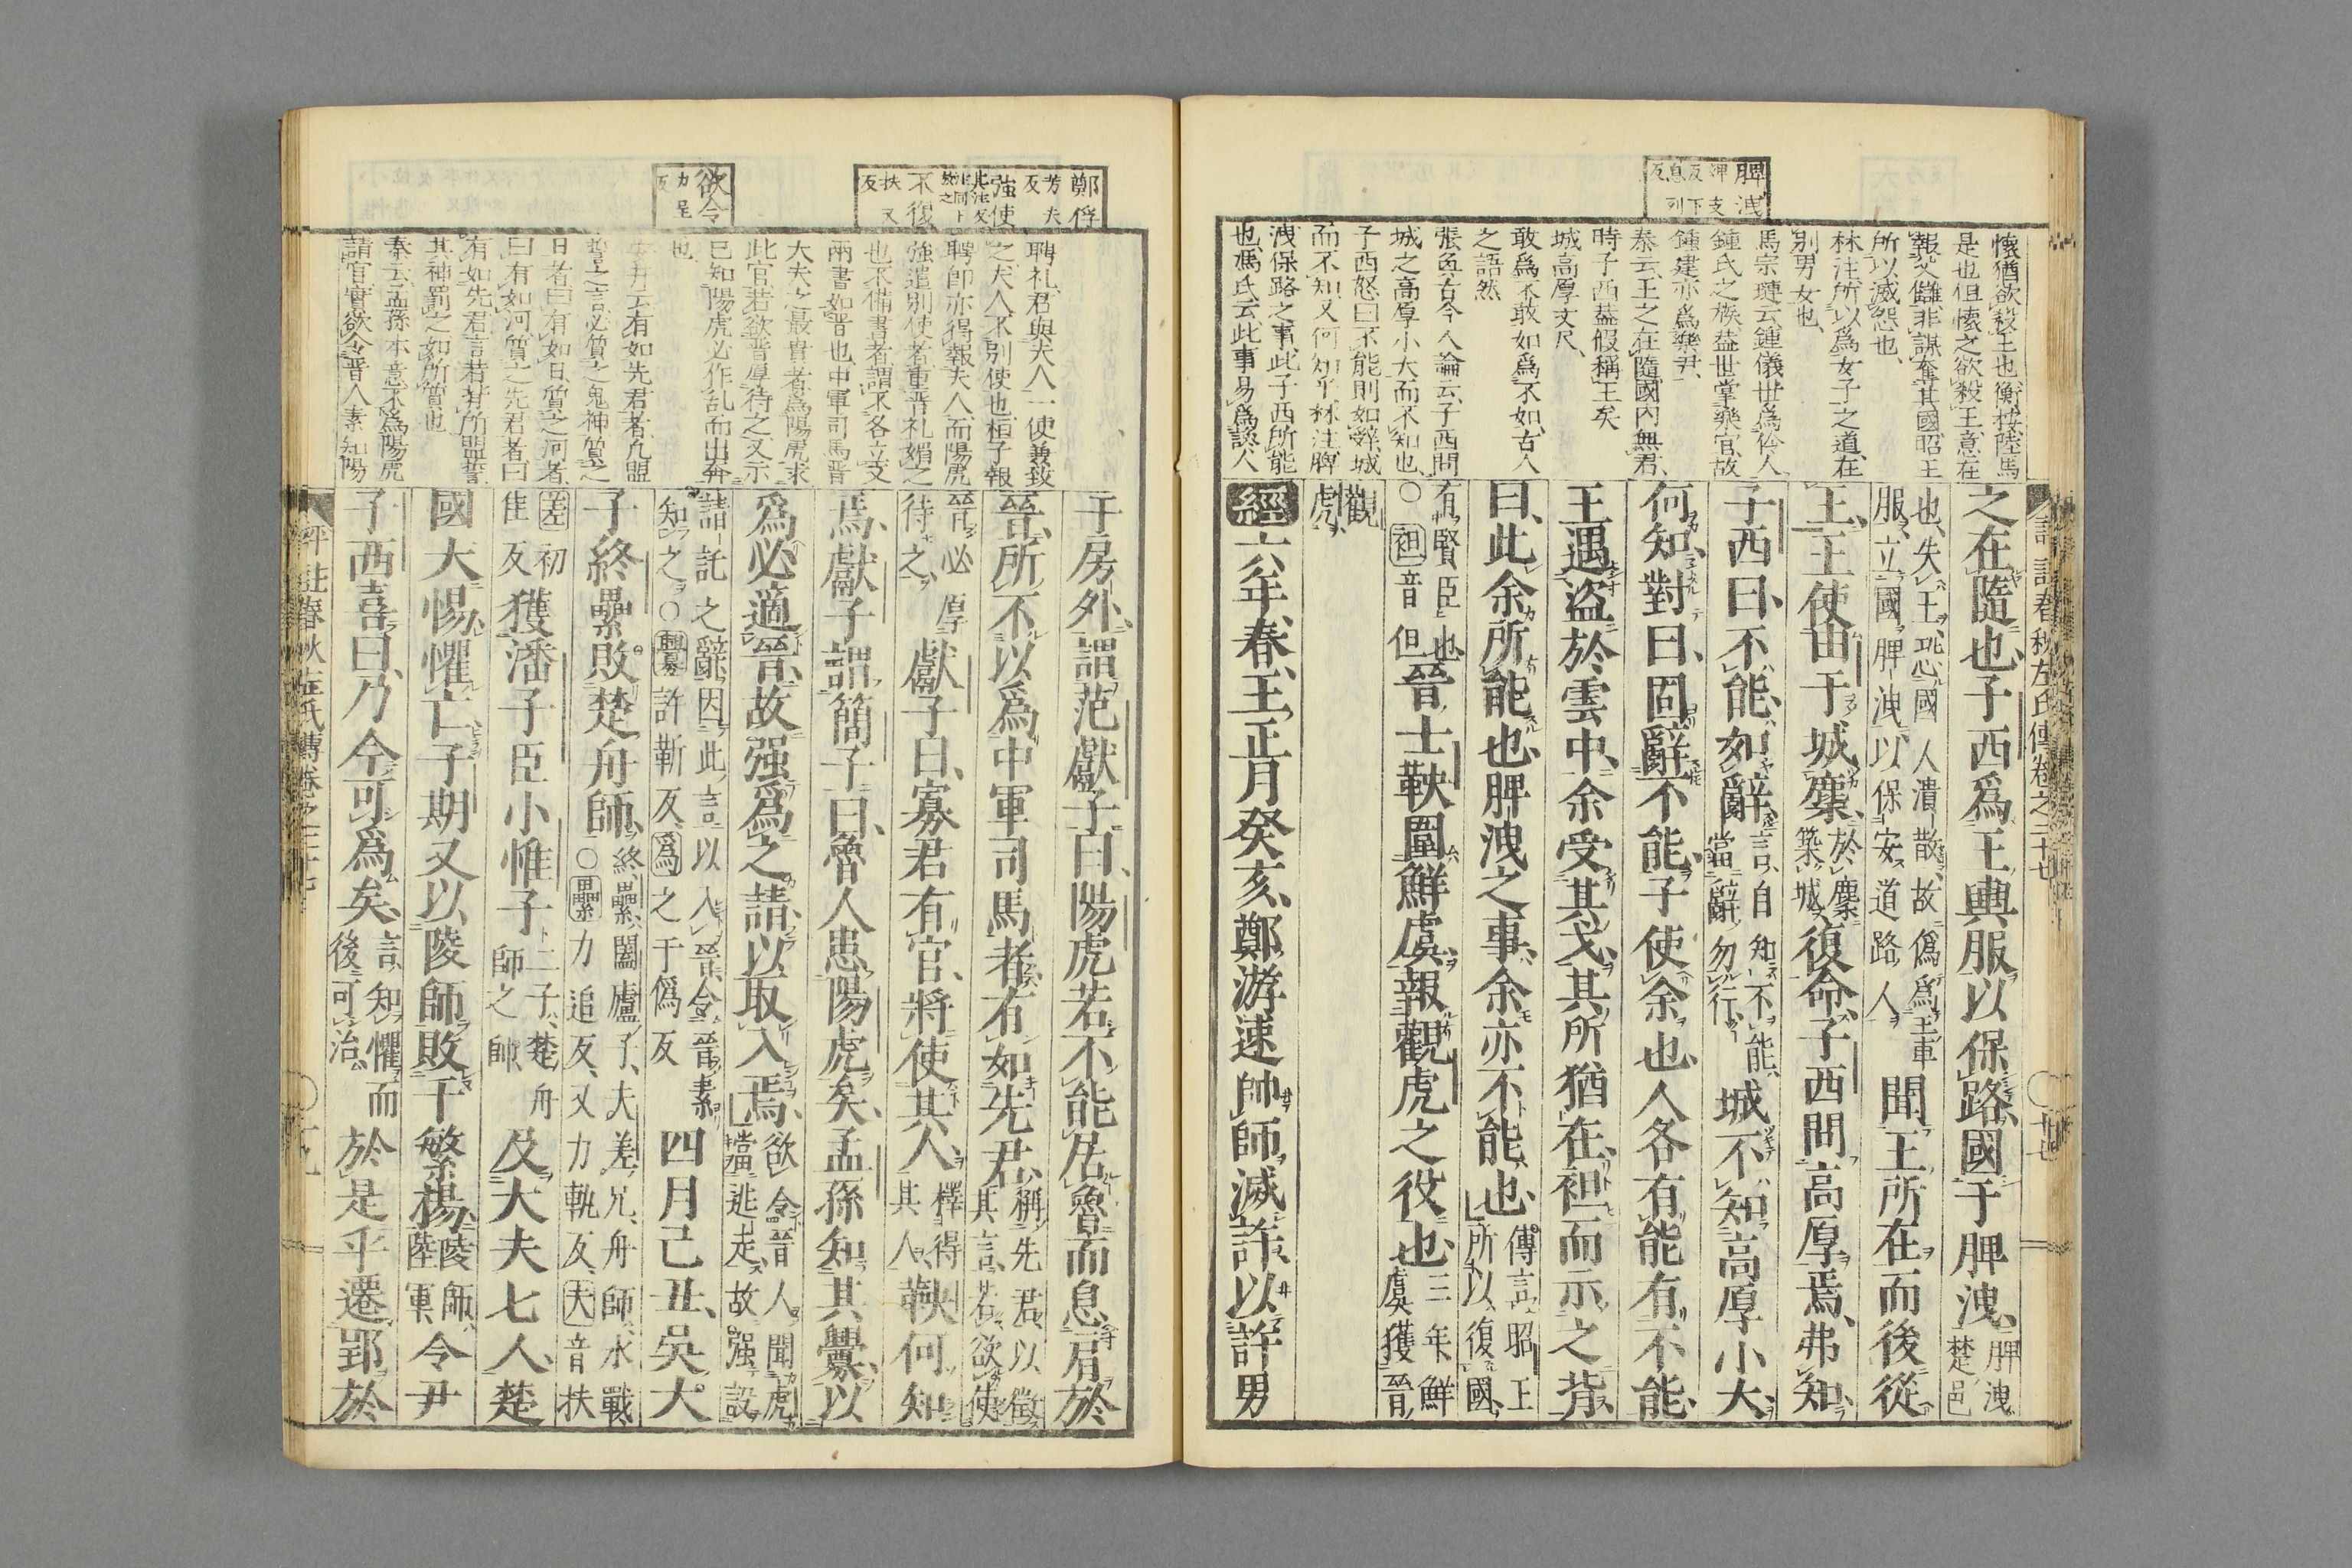 脾洩婢支反下息列反
懷猶欲殺王也衡按陸馬
是也但懷之欲殺王意在
報父讎非謀奪其國昭王
所以滅怨也
林注所以爲女子之道在
別男女也
馬宗璉云鍾儀世爲伶人
鍾氏之族益世掌樂官故
鍾建亦爲樂尹
泰云王之在隨國内無君
時子西葢假稱王矣
城高厚丈尺
敢爲不敢如爲不如古人
之語然
古今人論云子西問
城之高厚小大而不知也
子西怒曰不能則如辭城
而不知又何知乎林注脾
洩保路之事此子西所能
也馮氏云此事易爲談人
春秋左氏傳卷之二十七
之在隨也子西爲王輿服以保路國于脾洩脾洩楚邑
也失王恐國人潰散故僞爲王車服立國脾洩以保安道路人聞王所在而後從
王王使由于城麇於麇築城復命子西問高厚焉弗知
子西曰不能如辭言自知不能當辭勿行城不知高厚小大
何知對曰固辭不能子使余也人各有能有不能
王遇盜於雲中余受其戈其所猶在袒而示之背
曰此余所能也脾洩之事余亦不能也傳言昭王所以復國
有賢臣也○袒音但晉士鞅圍鮮虞報觀虎之役也三年鮮虞獲晉
觀虎
經六年春王正月癸亥鄭游速帥師滅許以許男
鄭俘芳夫反
強使
不復扶又反
欲令力呈反
聘礼君與夫人一使兼致
之夫人不別使也桓子報
聘卽亦得報夫人而陽虎
強遣別使者重晋礼媚之
也不備書者謂不各立文
兩書如晋也中軍司馬晋
大夫之最貴者爲陽虎求
此官若欲晋厚待之又示
已知陽虎必作乱而出奔
也
云有如先君者凡盟
誓之言必質之鬼神質之
日者曰有如日質之河者
曰有如河質之先君者曰
有如先君言若其所盟誓
其神罰之如所質也
秦云孟孫本意不爲陽虎
請官實欲令晋人素知陽
于房外謂范獻子曰陽虎若不能居魯而息肩於
晉所不以爲中軍司馬者有如先君稱先君以徵其言若欲使
晉必厚待之獻子曰寡君有官將使其人擇得其人鞅何知
焉獻子謂簡子曰魯人患陽虎矣孟孫知其釁以
爲必適晉故强爲之請以取入焉欲令晉人聞虎當逃走故强設
請託之辭因此言以入晉令晉素知之○釁許靳反爲之于僞反四月己丑吳大
子終纍敗楚舟師終纍闔廬子夫差兄舟師水戰○纍力追反又力軌反大音扶
差初隹反獲潘子臣小惟子二子楚舟師之帥及大夫七人楚
國大惕懼亡子期又以陵師敗于繁揚陵師陸軍令尹
子西喜曰乃今可爲矣言知懼而後可治於是乎遷郢於
評註春秋左氏傳卷之二十七